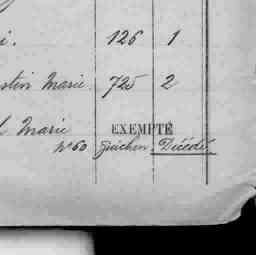 i. 126 1
stin Marie 725 2
l Marie EXEMPTÉ
N° 60 Guichen. Décédé.